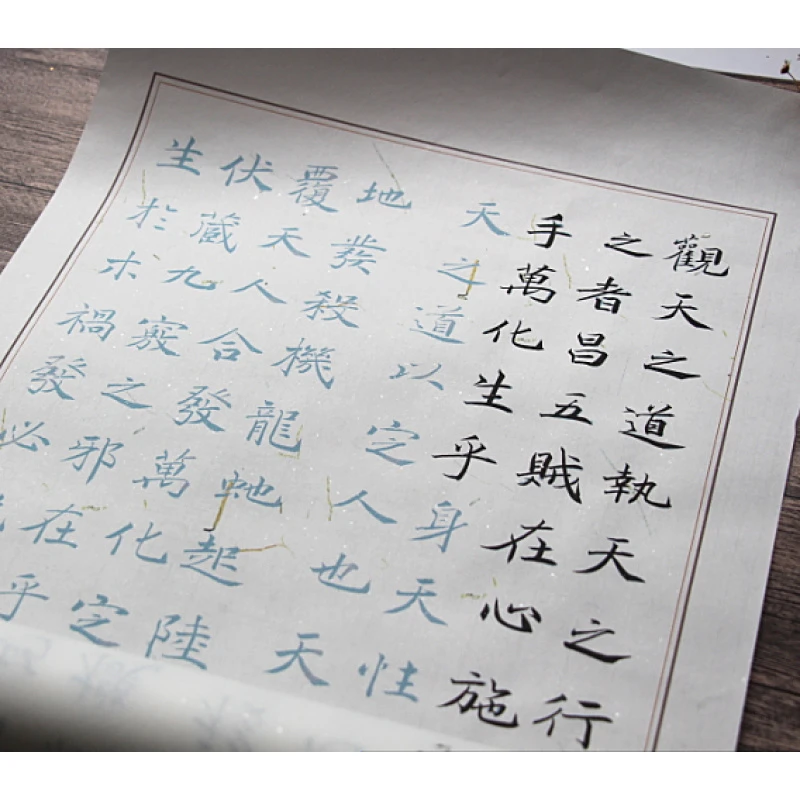 觀天之道執天之行
之者昌五賊在心施
手萬化生乎身天性
天之道以定人也天
地發殺機龍虵起陸
覆天人合發萬化定
伏藏九竅之邪在乎
生扵木禍發必